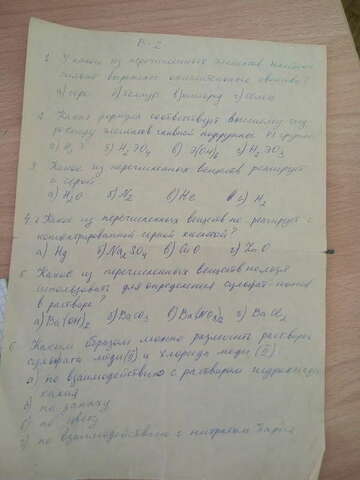 В-2
1. У какого из перечисленных элементов наиболее
сильно выражены окислительные свойства?
а) сера б) теллур в) полоний г) селен
2. Какая формула соответствует высшему
оксиду элементов главной подгруппы VI группы
б) H2ЭO4 в) Э(OH)6 г) H2ЭO3
3. Какое из перечисленных веществ реагирует
с серой
а) H2O б) N2 в) He г) H2
4. Какое из перечисленных веществ не реагирует с
концентрированной серной кислотой?
а) Hg б) Na2SO4 в) CuO г) ZnO
5. Какое из перечисленных веществ нельзя
использовать для определения сульфат-ионов
в растворе?
а) Ba(OH)2 б) BaCO3 в) Ba(NO3)2 г) BaCl2
6. Каким образом можно различить растворы
сульфата меди (II) и хлорида меди (II)
а) по взаимодействию с раствором гидроксида
калия
б) по запаху
в) по цвету
г) по взаимодействию с нитратом бария